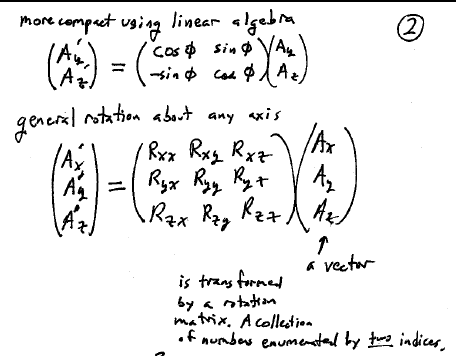 more compact using linear algebra
②
(A_y') = ( cos ϕ sin ϕ ) (A_y)
(A_z') (-sin ϕ cos ϕ) (A_z)
general rotation about any axis
(A_x') (R_xx R_xy R_xz) (A_x)
(A_y') = (R_yx R_yy R_yz) (A_y)
(A_z') (R_zx R_zy R_zz) (A_z)
↑
a vector
is transformed
by a rotation
matrix. A collection
of numbers enumerated by two indices.